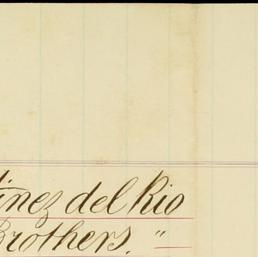 tinez del Rio
Brothers. "